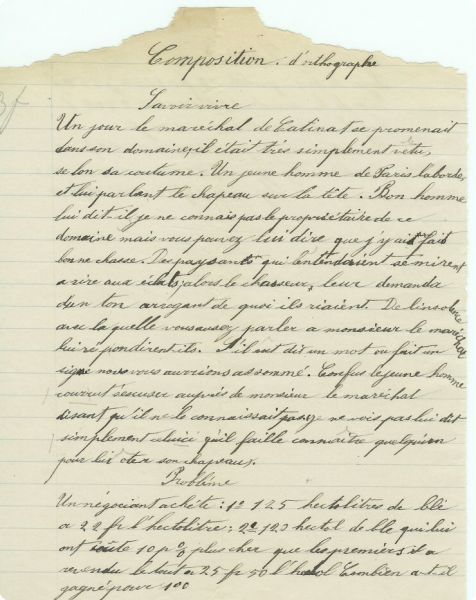 Composition d'orthographe
Savoir vivre
Un jour le maréchal de Catinat se promenait
dans son domaine, il était très simplement vêtu,
selon sa coutume. Un jeune homme de Paris laborde,
et lui parlant le chapeau sur la tête. Bon homme
lui dit il je ne connais pas le propriétaire de ce
domaine mais vous pouvez lui dire que j'y ai fait
bonne chasse. Des paysants qui l'entendirent se mirent
a rire aux éclats; alors le chasseur, leur demanda
d'un ton arrogant de quoi ils riaient. De l'insolence
avec la quelle vous ausez parler a monsieur le maréchal
lui répondirent ils. S'il eut dit un mot ou fait un
signe nous vous aurrions assommé. Confus le jeune homme
courrut s'escuser auprès de monsieur le maréchal
disant qu'il ne le connaissait pas je ne vois pas lui dit
simplement celuici qu'il faille connaitre quelqu'un
pour lui oter son chapeau.
Problème
Un négociant achète: 1º 125 hectolitres de blé
a 22 fr l'hectolitre; 2º 123 hectol de blé qui lui
ont coûte 10 p % plus cher que les premiers il a
revendu le tout a 25 fr 50 l'hectol Combien a-t-il
gagné pour 100